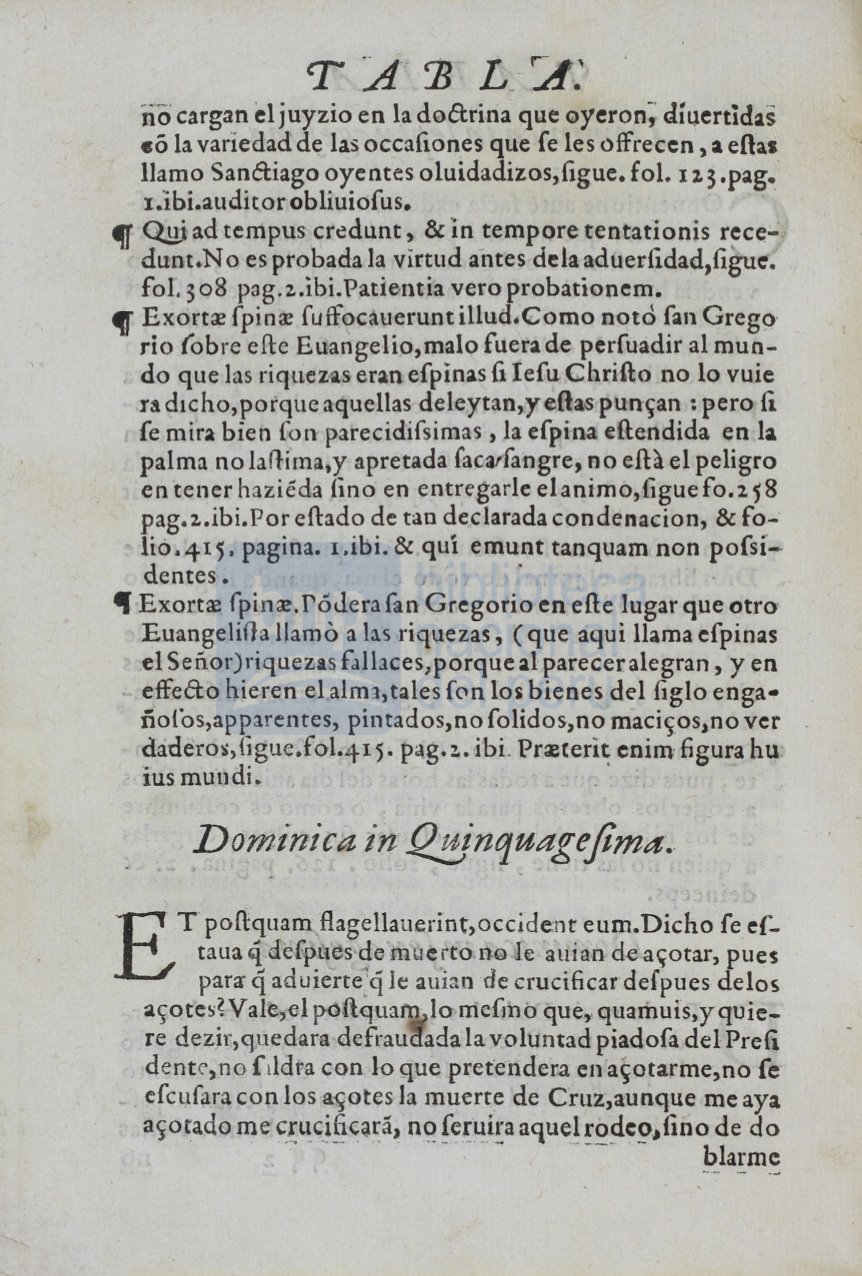 TABLA.
no cargan el juyzio en la doctrina que oyeron, diuertidas
cõ la variedad de las occaſiones que ſe les offrecen, a eſtas
llamo Sanctiago oyentes oluidadizos, ſigue. fol. 123. pag.
1. ibi. auditor obliuioſus.
¶ Qui ad tempus credunt, & in tempore tentationis rece-
dunt. No es probada la virtud antes de la aduerſidad, ſigue.
fol. 308 pag. 2. ibi. Patientia vero probationem.
¶ Exortæ ſpinæ ſuffocauerunt illud. Como notó ſan Grego
rio ſobre eſte Euangelio, malo fuera de perſuadir al mun-
do que las riquezas eran eſpinas ſi Ieſu Chriſto no lo vuie
ra dicho, porque aquellas deleytan, y eſtas punçan : pero ſi
ſe mira bien ſon parecidiſsimas, la eſpina eſtendida en la
palma no laſtima, y apretada ſaca ſangre, no eſtà el peligro
en tener haziẽda ſino en entregarle el animo, ſigue fo. 258
pag. 2. ibi. Por eſtado de tan declarada condenacion, & fo-
lio. 415. pagina. 1. ibi. & qui emunt tanquam non poſsi-
dentes.
¶ Exortæ ſpinæ. Põdera ſan Gregorio en eſte lugar que otro
Euangeliſta llamò a las riquezas, (que aqui llama eſpinas
el Señor) riquezas fallaces, porque al parecer alegran, y en
effecto hieren el alma, tales ſon los bienes del ſiglo enga-
ñoſos, apparentes, pintados, no ſolidos, no maciços, no ver
daderos, ſigue. fol. 415. pag. 2. ibi. Præterit enim figura hu
ius mundi.
Dominica in Quinquageſima.
ET poſtquam flagellauerint, occident eum. Dicho ſe eſ-
taua q̃ deſpues de muerto no le auian de açotar, pues
para q̃ aduierte q̃ le auian de crucificar deſpues delos
açotes? Vale, el poſtquam, lo meſmo que, quamuis, y quie-
re dezir, quedara defraudada la voluntad piadoſa del Preſi
dente, no ſaldra con lo que pretendera en açotarme, no ſe
eſcuſara con los açotes la muerte de Cruz, aunque me aya
açotado me crucificarã, no ſeruira aquel rodeo, ſino de do
blarme